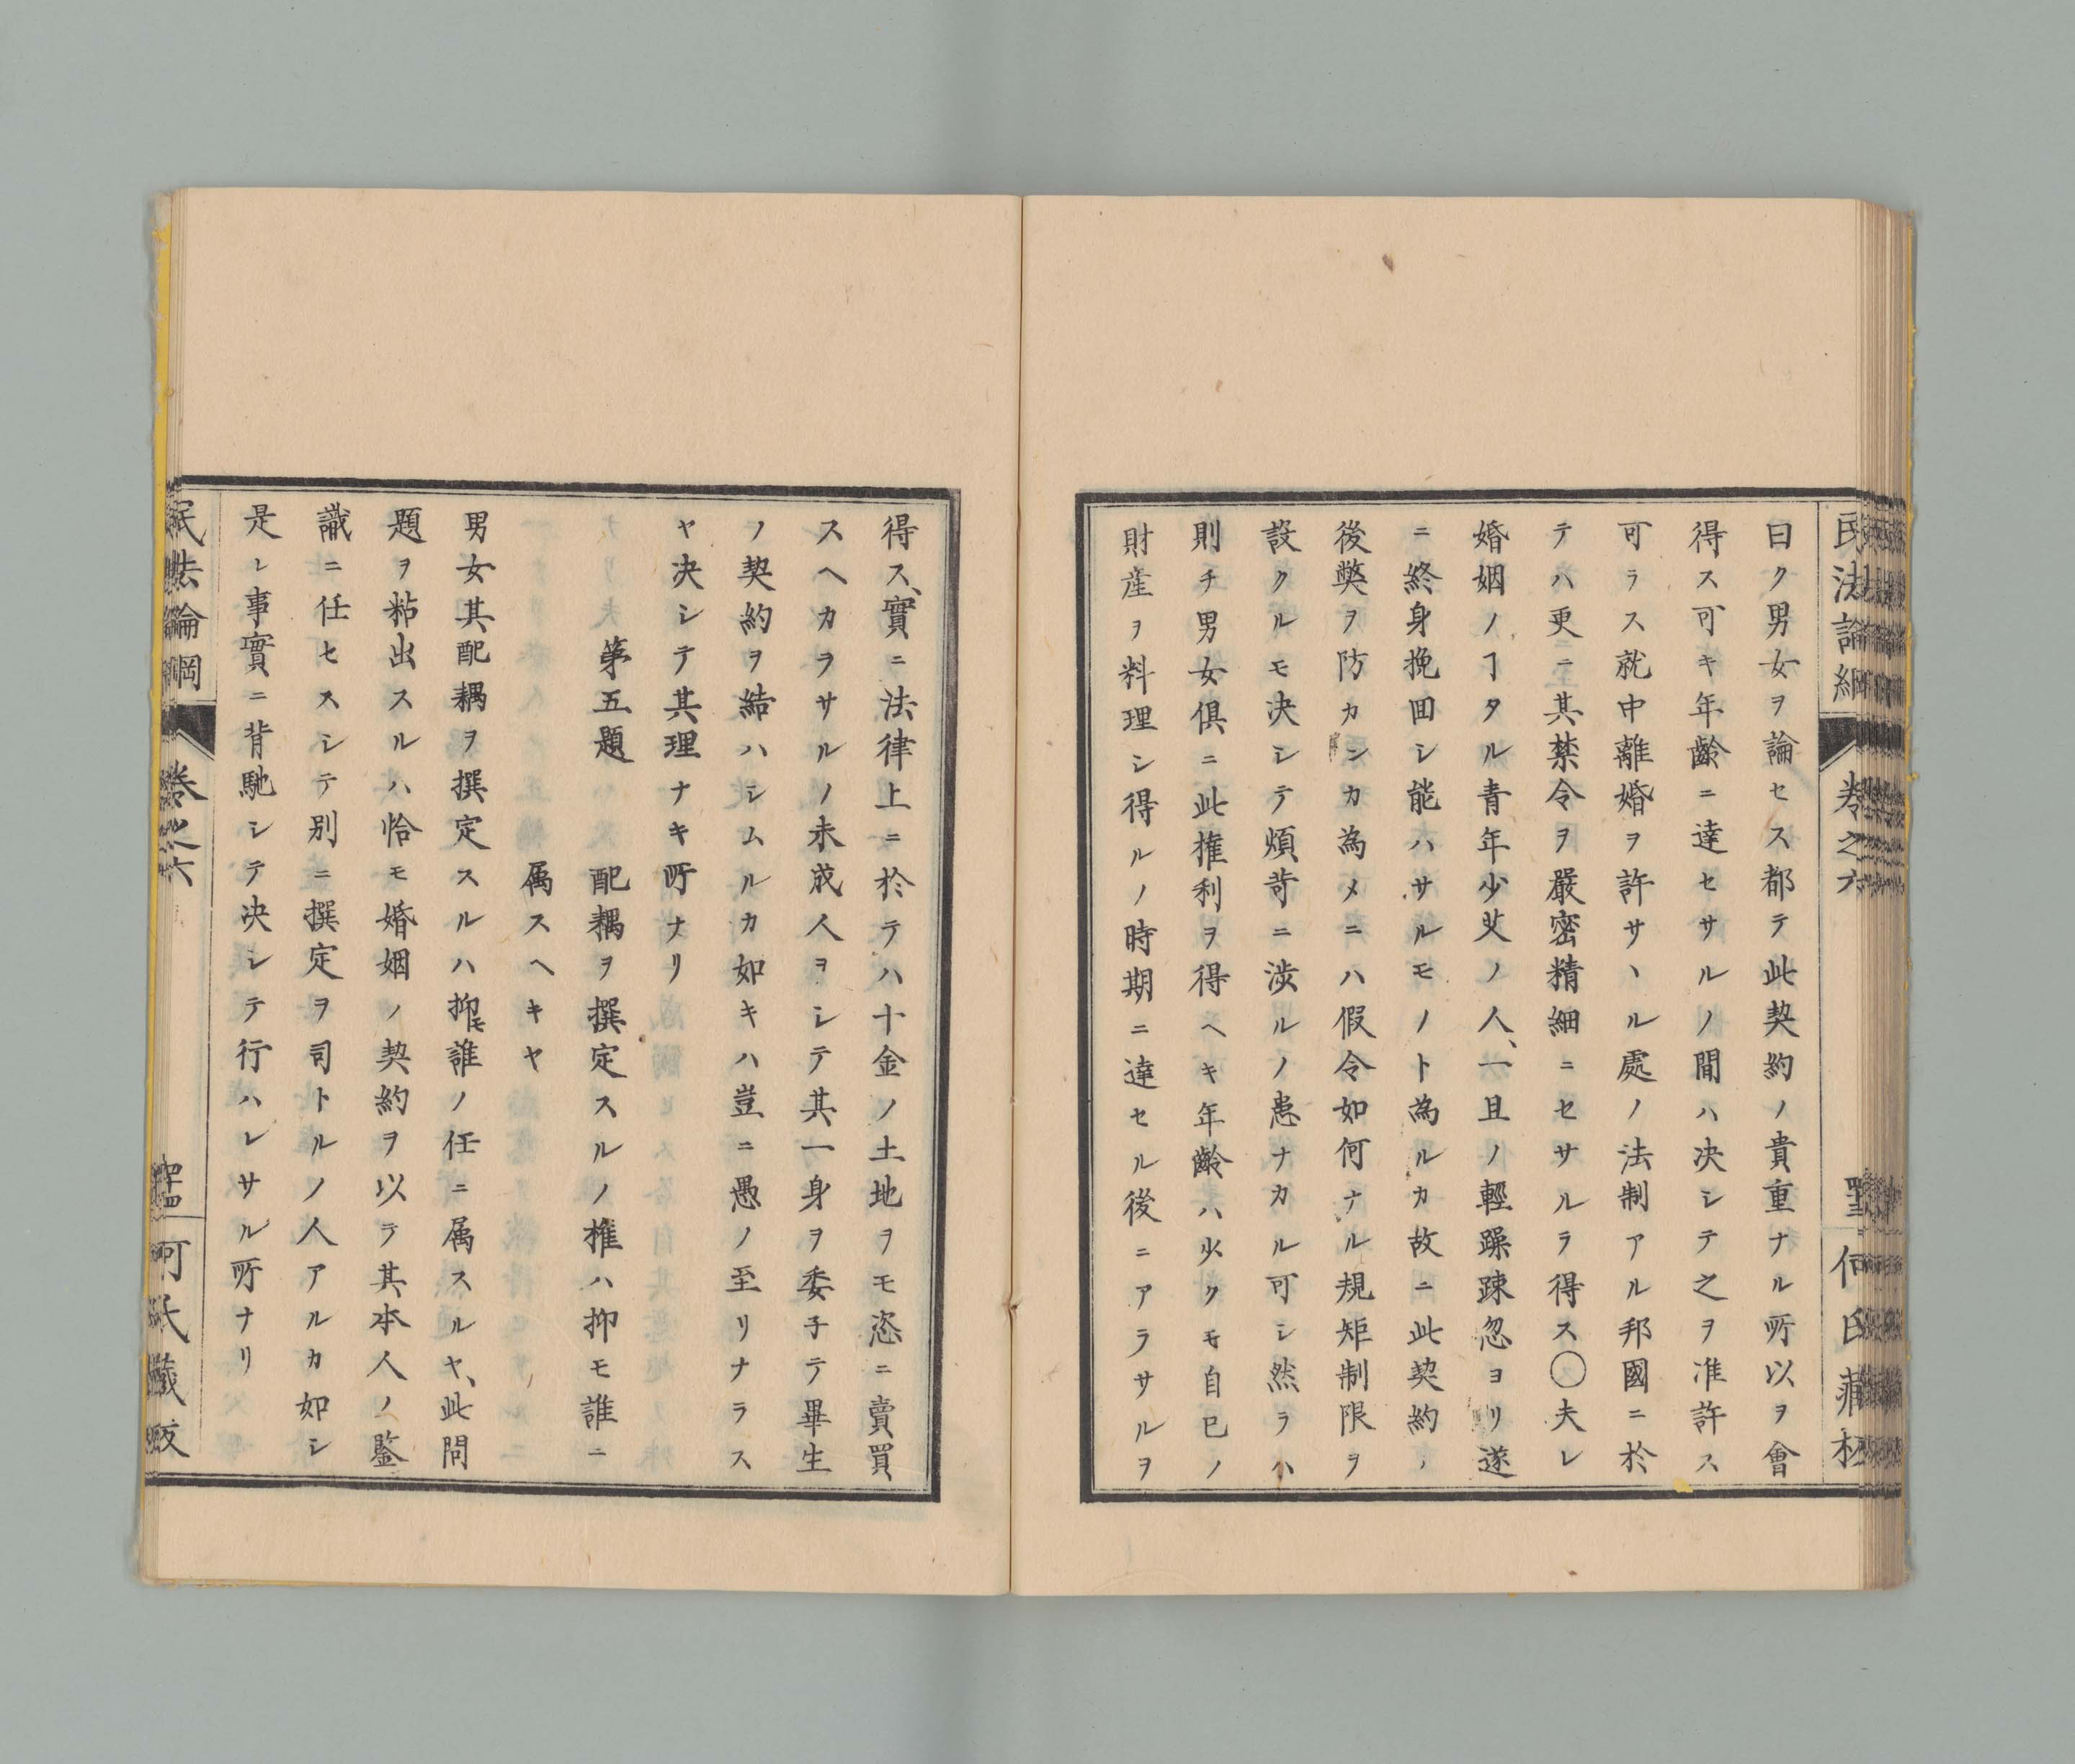 民法論綱
巻之六
何氏蔵板
曰ク男女ヲ論セス都テ此契約ノ貴重ナル所以ヲ會
得ス可キ年齡ニ達セサルノ間ハ决シテ之ヲ准許ス
可ラス就中離婚ヲ許サヽル處ノ法制アル邦國ニ於
テハ更ニ其禁令ヲ嚴密精細ニセサルヲ得ス〇夫レ
婚姻ノヿタル青年少艾ノ人、一旦ノ輕躁踈忽ヨリ遂
ニ終身挽回シ能ハサルモノト為ルカ故ニ此契約ノ
後獘ヲ防カンカ為メニハ假令如何ナル規矩制限ヲ
設クルモ决シテ煩苛ニ渉ルノ患ナカル可シ然ラハ
則チ男女倶ニ此権利ヲ得ヘキ年齡ハ少クモ自已ノ
財産ヲ料理シ得ルノ時期ニ達セル後ニアラサルヲ
得ス、實ニ法律上ニ於テハ十金ノ土地ヲモ恣ニ賣買
スヘカラサルノ未成人ヲシテ其一身ヲ委子テ畢生
ノ契約ヲ結ハシムルカ如キハ豈ニ愚ノ至リナラス
ヤ决シテ其理ナキ所ナリ
第五題
配耦ヲ撰定スルノ権ハ抑モ誰ニ
属スヘキヤ
男女其配耦ヲ撰定スルハ抑モ誰ノ任ニ属スルヤ、此問
題ヲ粘出スルハ恰モ婚姻ノ契約ヲ以テ其本人ノ鑒
識ニ任セスシテ別ニ撰定ヲ司トルノ人アルカ如シ
是レ事實ニ背馳シテ决シテ行ハレサル所ナリ
民法論綱
巻之六
何氏藏版